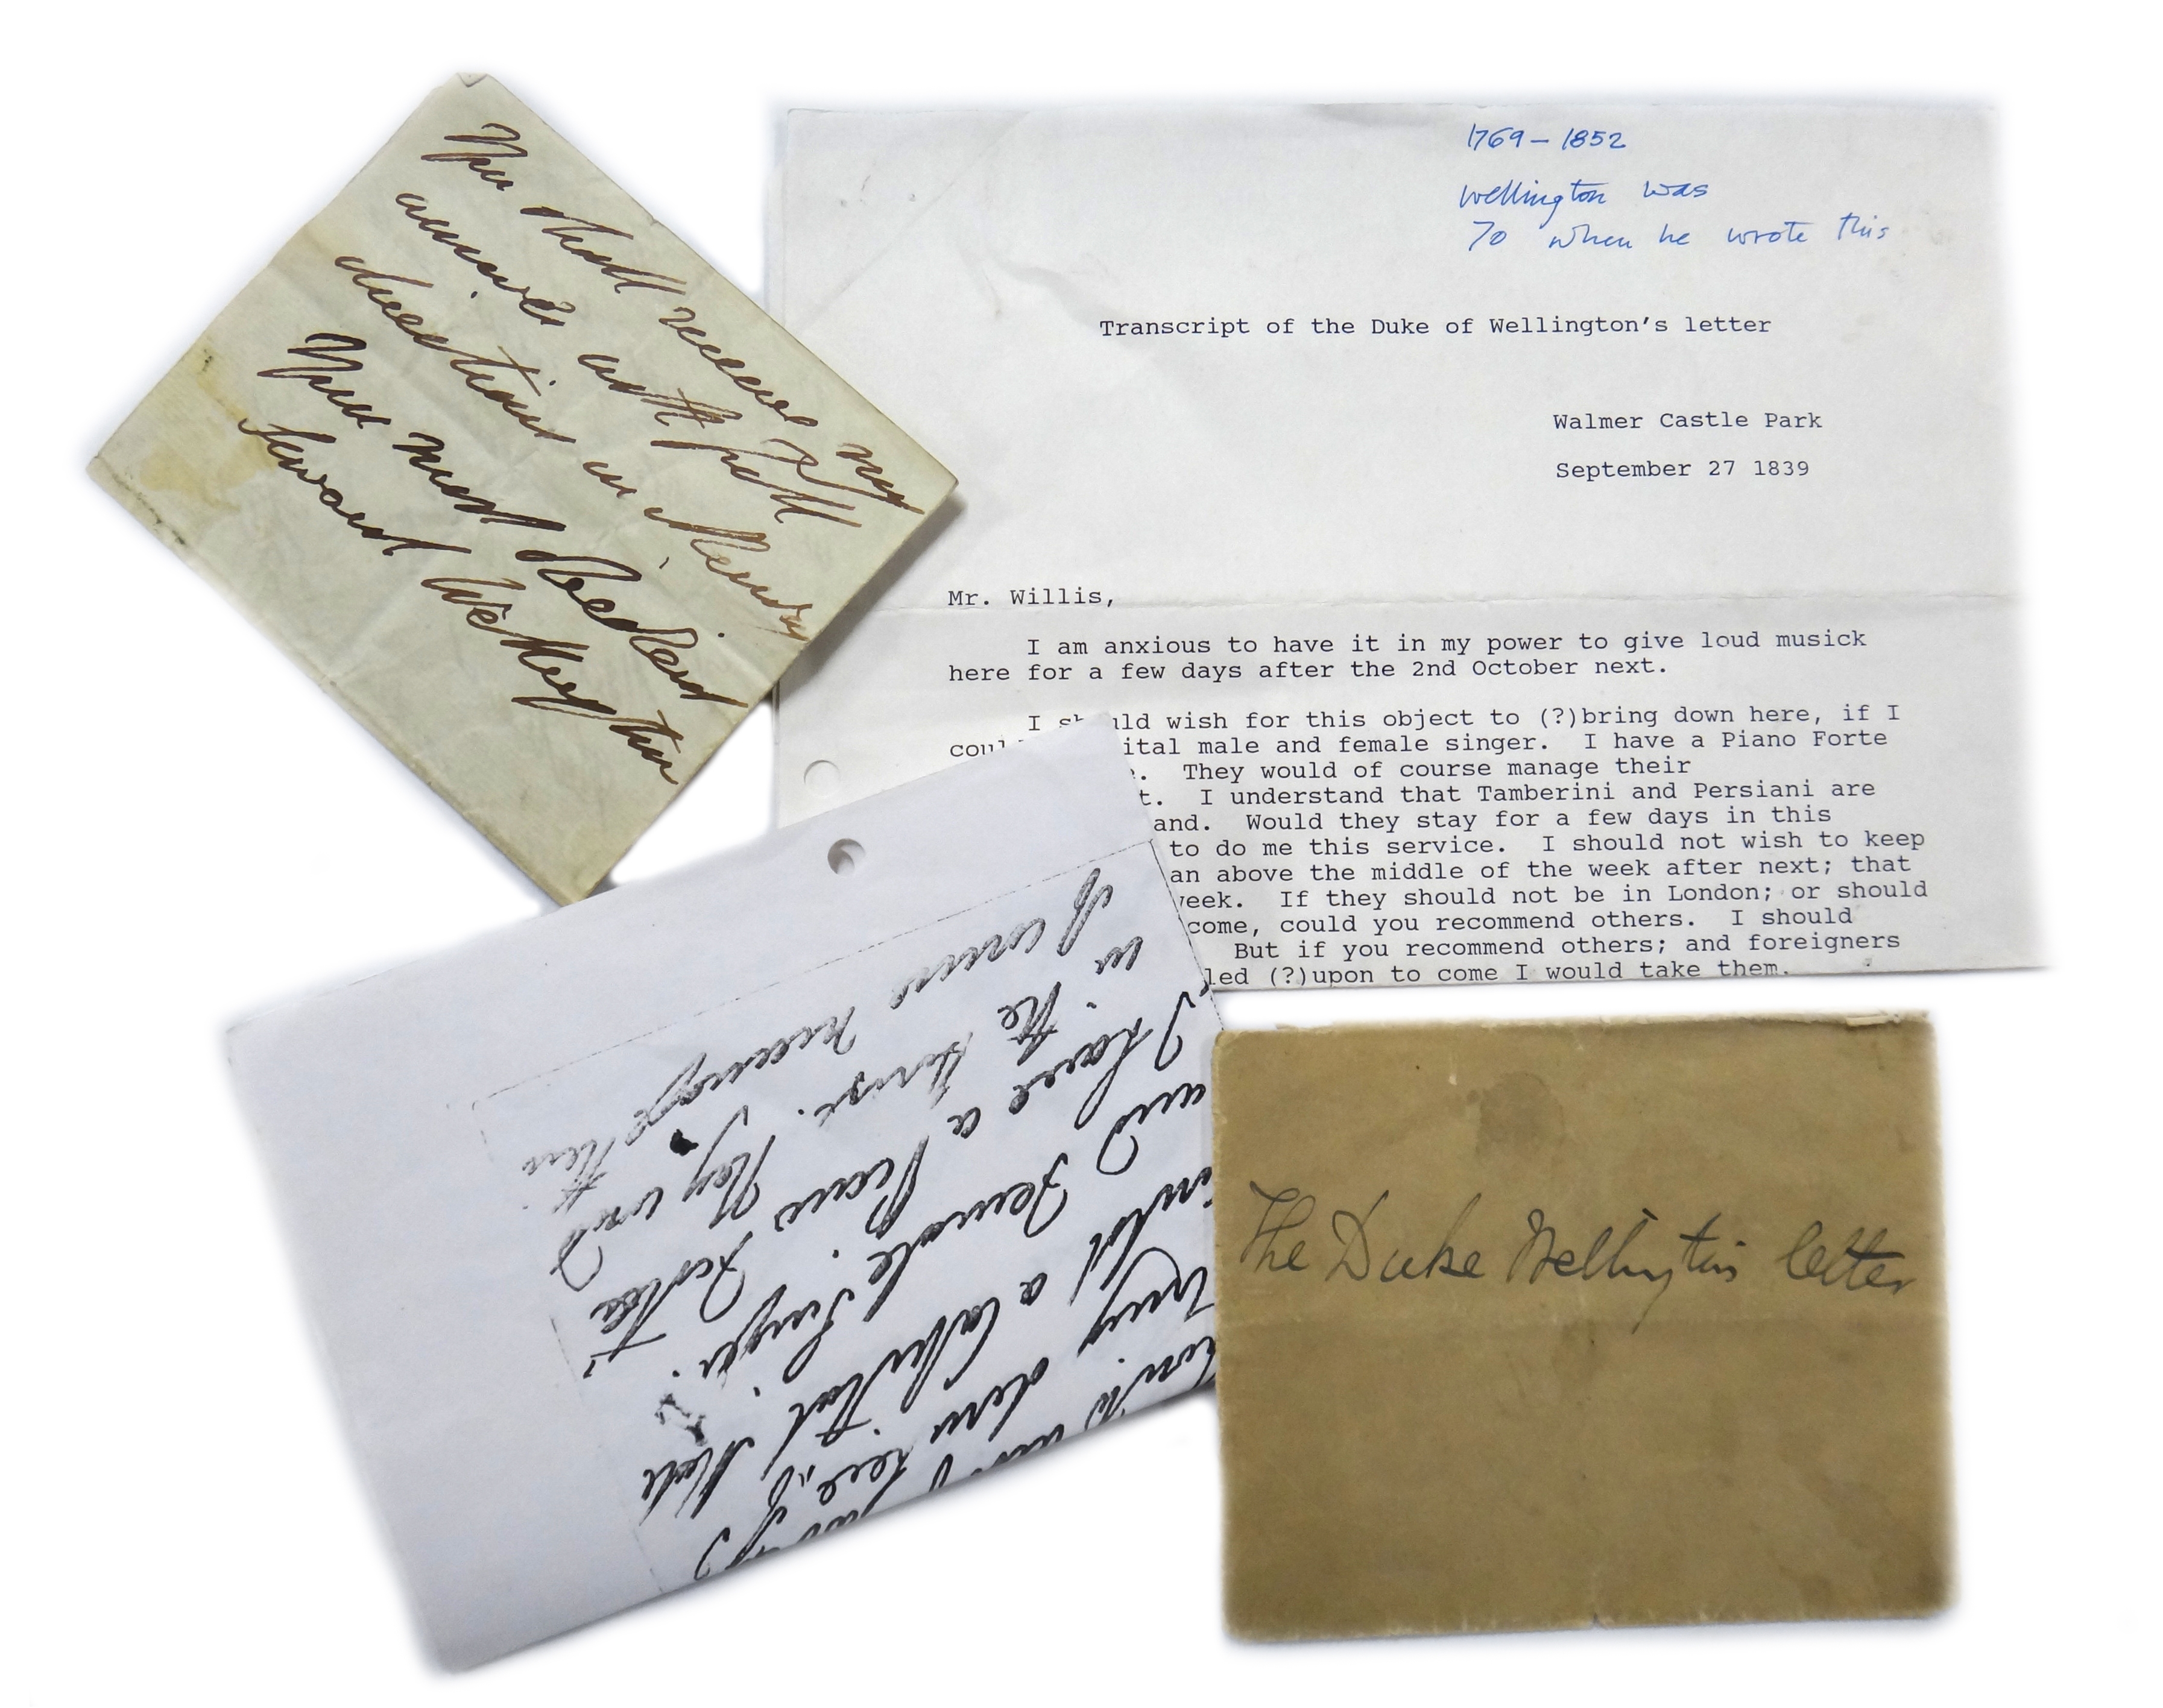 You shall receive my
answer with full
directions on Monday
Your most obedient
Servant Wellington
1769 – 1852
Wellington was
70 when he wrote this
Transcript of the Duke of Wellington's letter
Walmer Castle Park
September 27 1839
Mr. Willis,
I am anxious to have it in my power to give loud musick
here for a few days after the 2nd October next.
I should wish for this object to (?)bring down here, if I
coul ital male and female singer. I have a Piano Forte
e. They would of course manage their
t. I understand that Tamberini and Persiani are
and. Would they stay for a few days in this
to do me this service. I should not wish to keep
an above the middle of the week after next; that
week. If they should not be in London; or should
come, could you recommend others. I should
But if you recommend others; and foreigners
led (?)upon to come I would take them.
bring down here, if I
could a capital Male
and Female Singer.
I have a Piano Forte
in the House. They would
of course manage their
The Duke Wellington letter